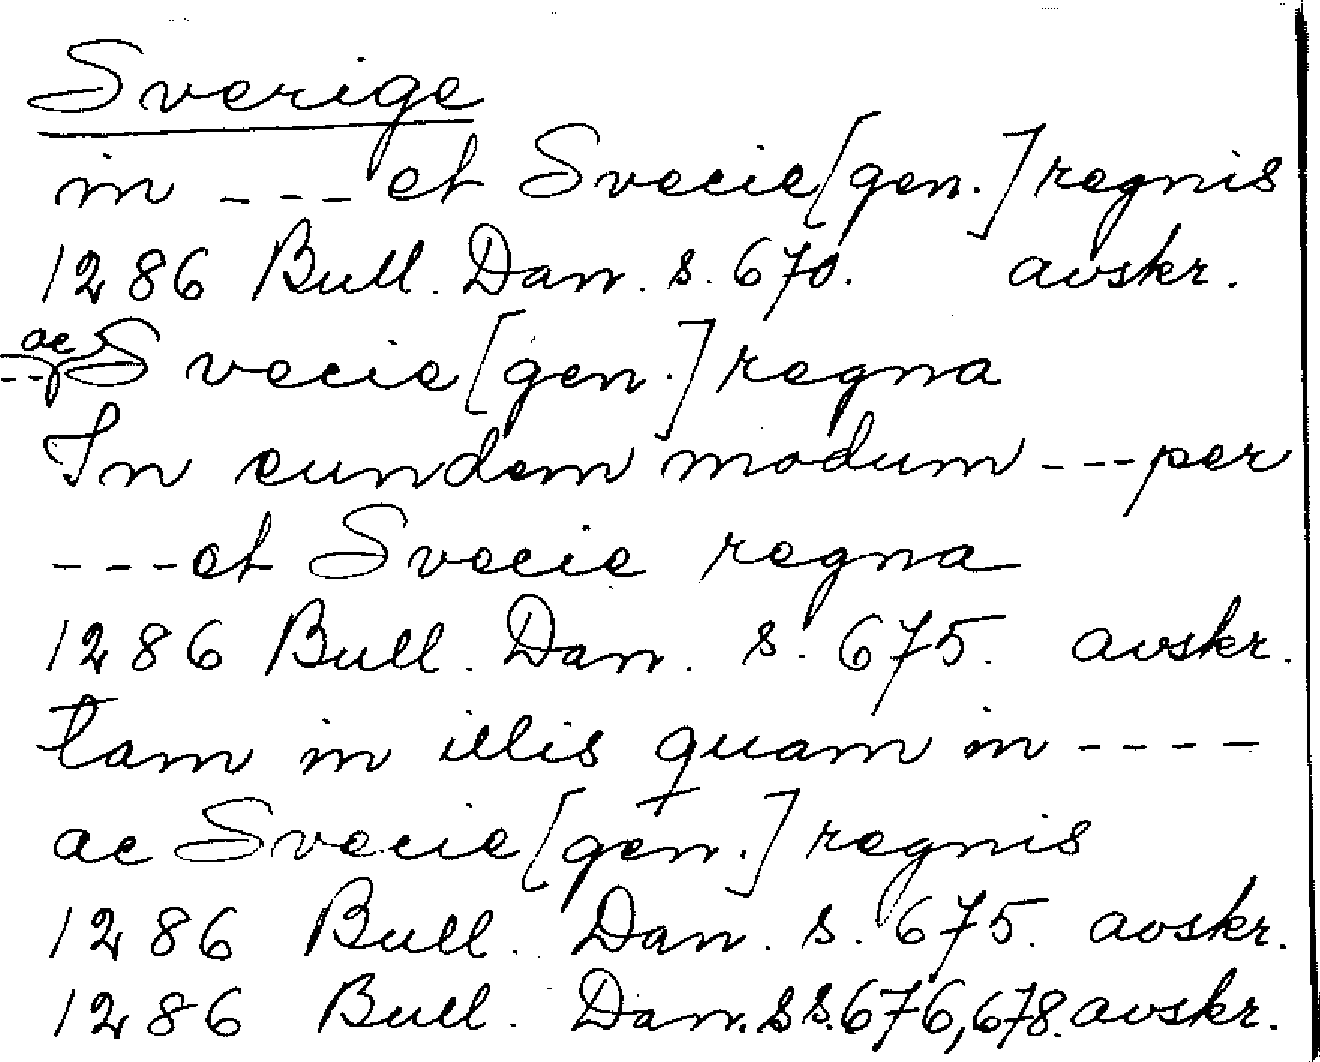 Sverige
in --- et Svecie [gen.] regnis
1286 Bull. Dan. s. 670. avskr.
--- ac Svecie [gen.] regna
In eundem modum --- per
--- et Svecie regna
1286 Bull. Dan. s. 675. avskr.
tam in illis quam in ----
ac Svecie [gen.] regnis
1286 Bull. Dan. s. 675. avskr.
1286 Bull. Dan. ss. 676, 678. avskr.